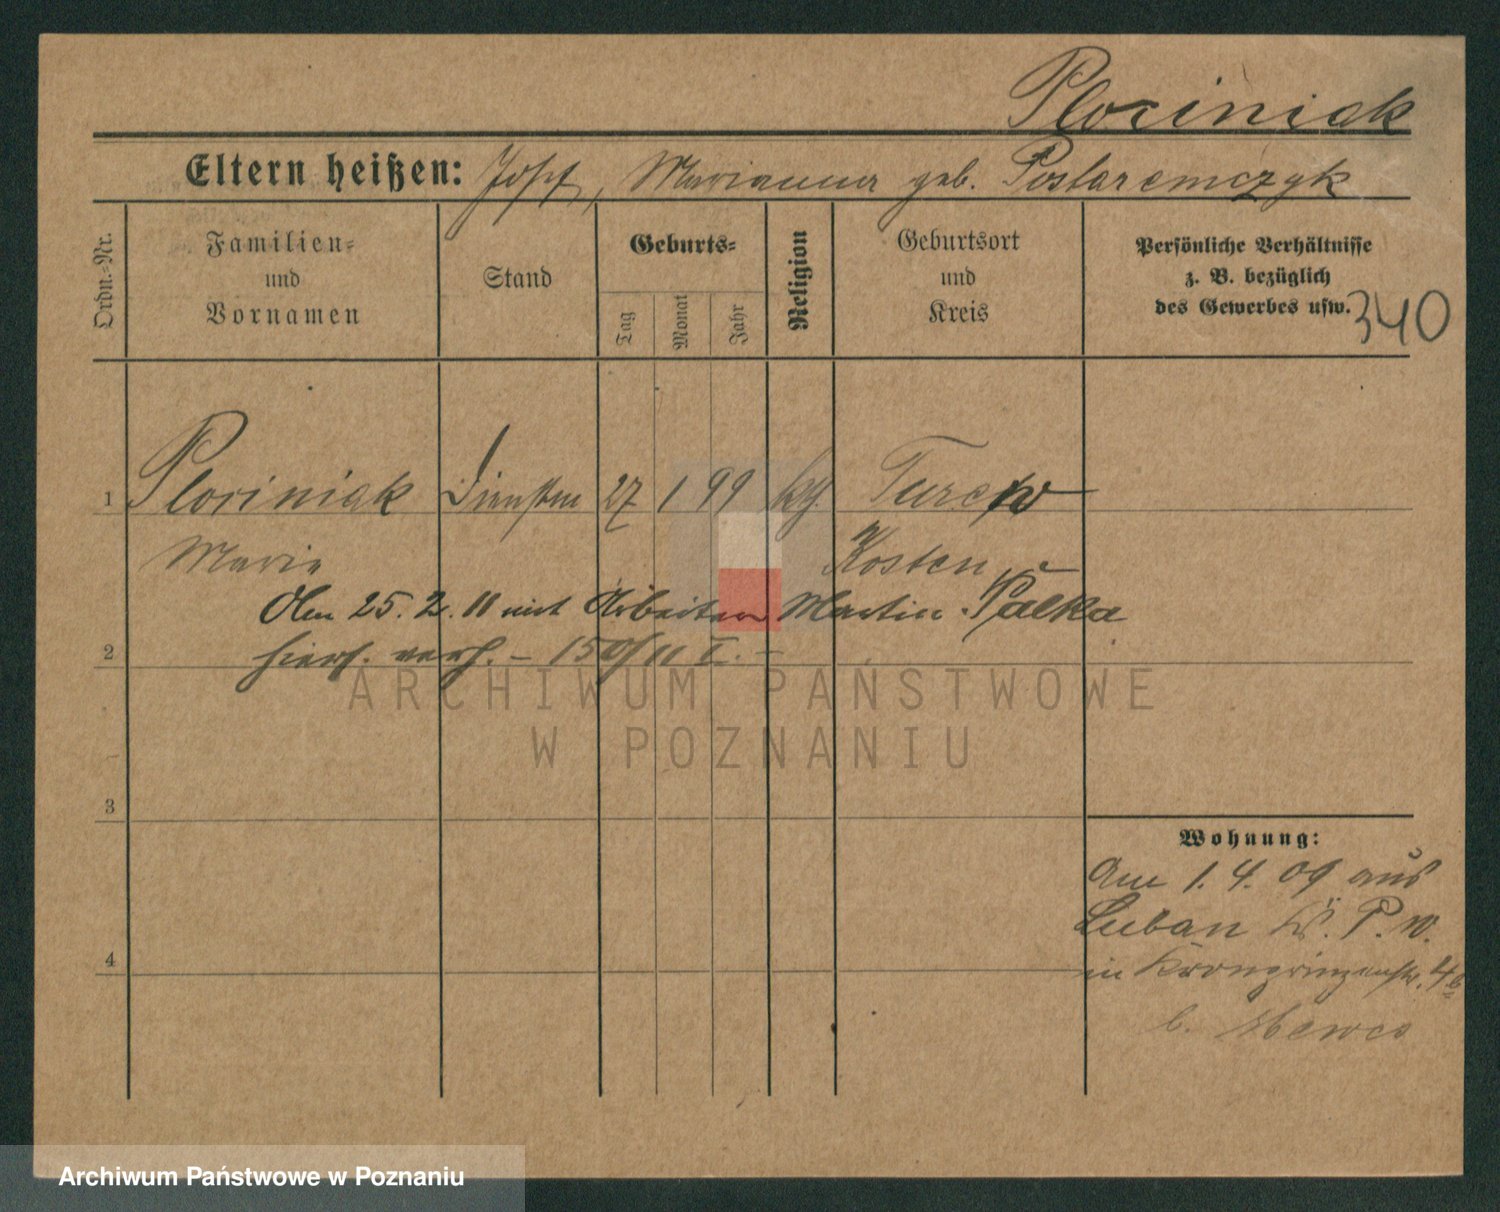 Plociniak
Eltern heißen: Josef, Marianna geb. Postaremczyk
Ordn.=Nr.
Familien=
und
Vornamen
Stand
Geburts=
Tag
Monat
Jahr
Religion
Geburtsort
und
Kreis
Persönliche Verhältnisse
z. B. bezüglich
des Gewerbes usw.
340
1 Plociniak 27 1 99 kth. Turew
Marie Kosten
Am 25. 2. 11 mit Arbeiter Martin Pałka
2 hiers. verh. – 150/11 I. –
ARCHIWUM PAŃSTWOWE
W POZNANIU
3
Wohnung:
Am 1. 4. 09 aus
Luban K. P. W.
4 in Kronprinzenstr. 4b
b.
Archiwum Państwowe w Poznaniu